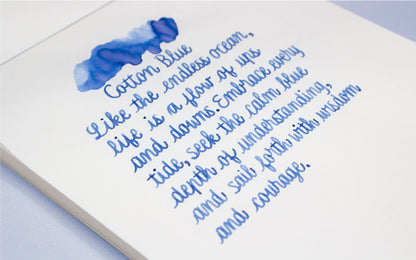 Cotton Blue
Like the endless ocean,
life is a flow of ups
and downs. Embrace every
tide, seek the calm blue
depth of understanding,
and sail forth with wisdom
and courage.